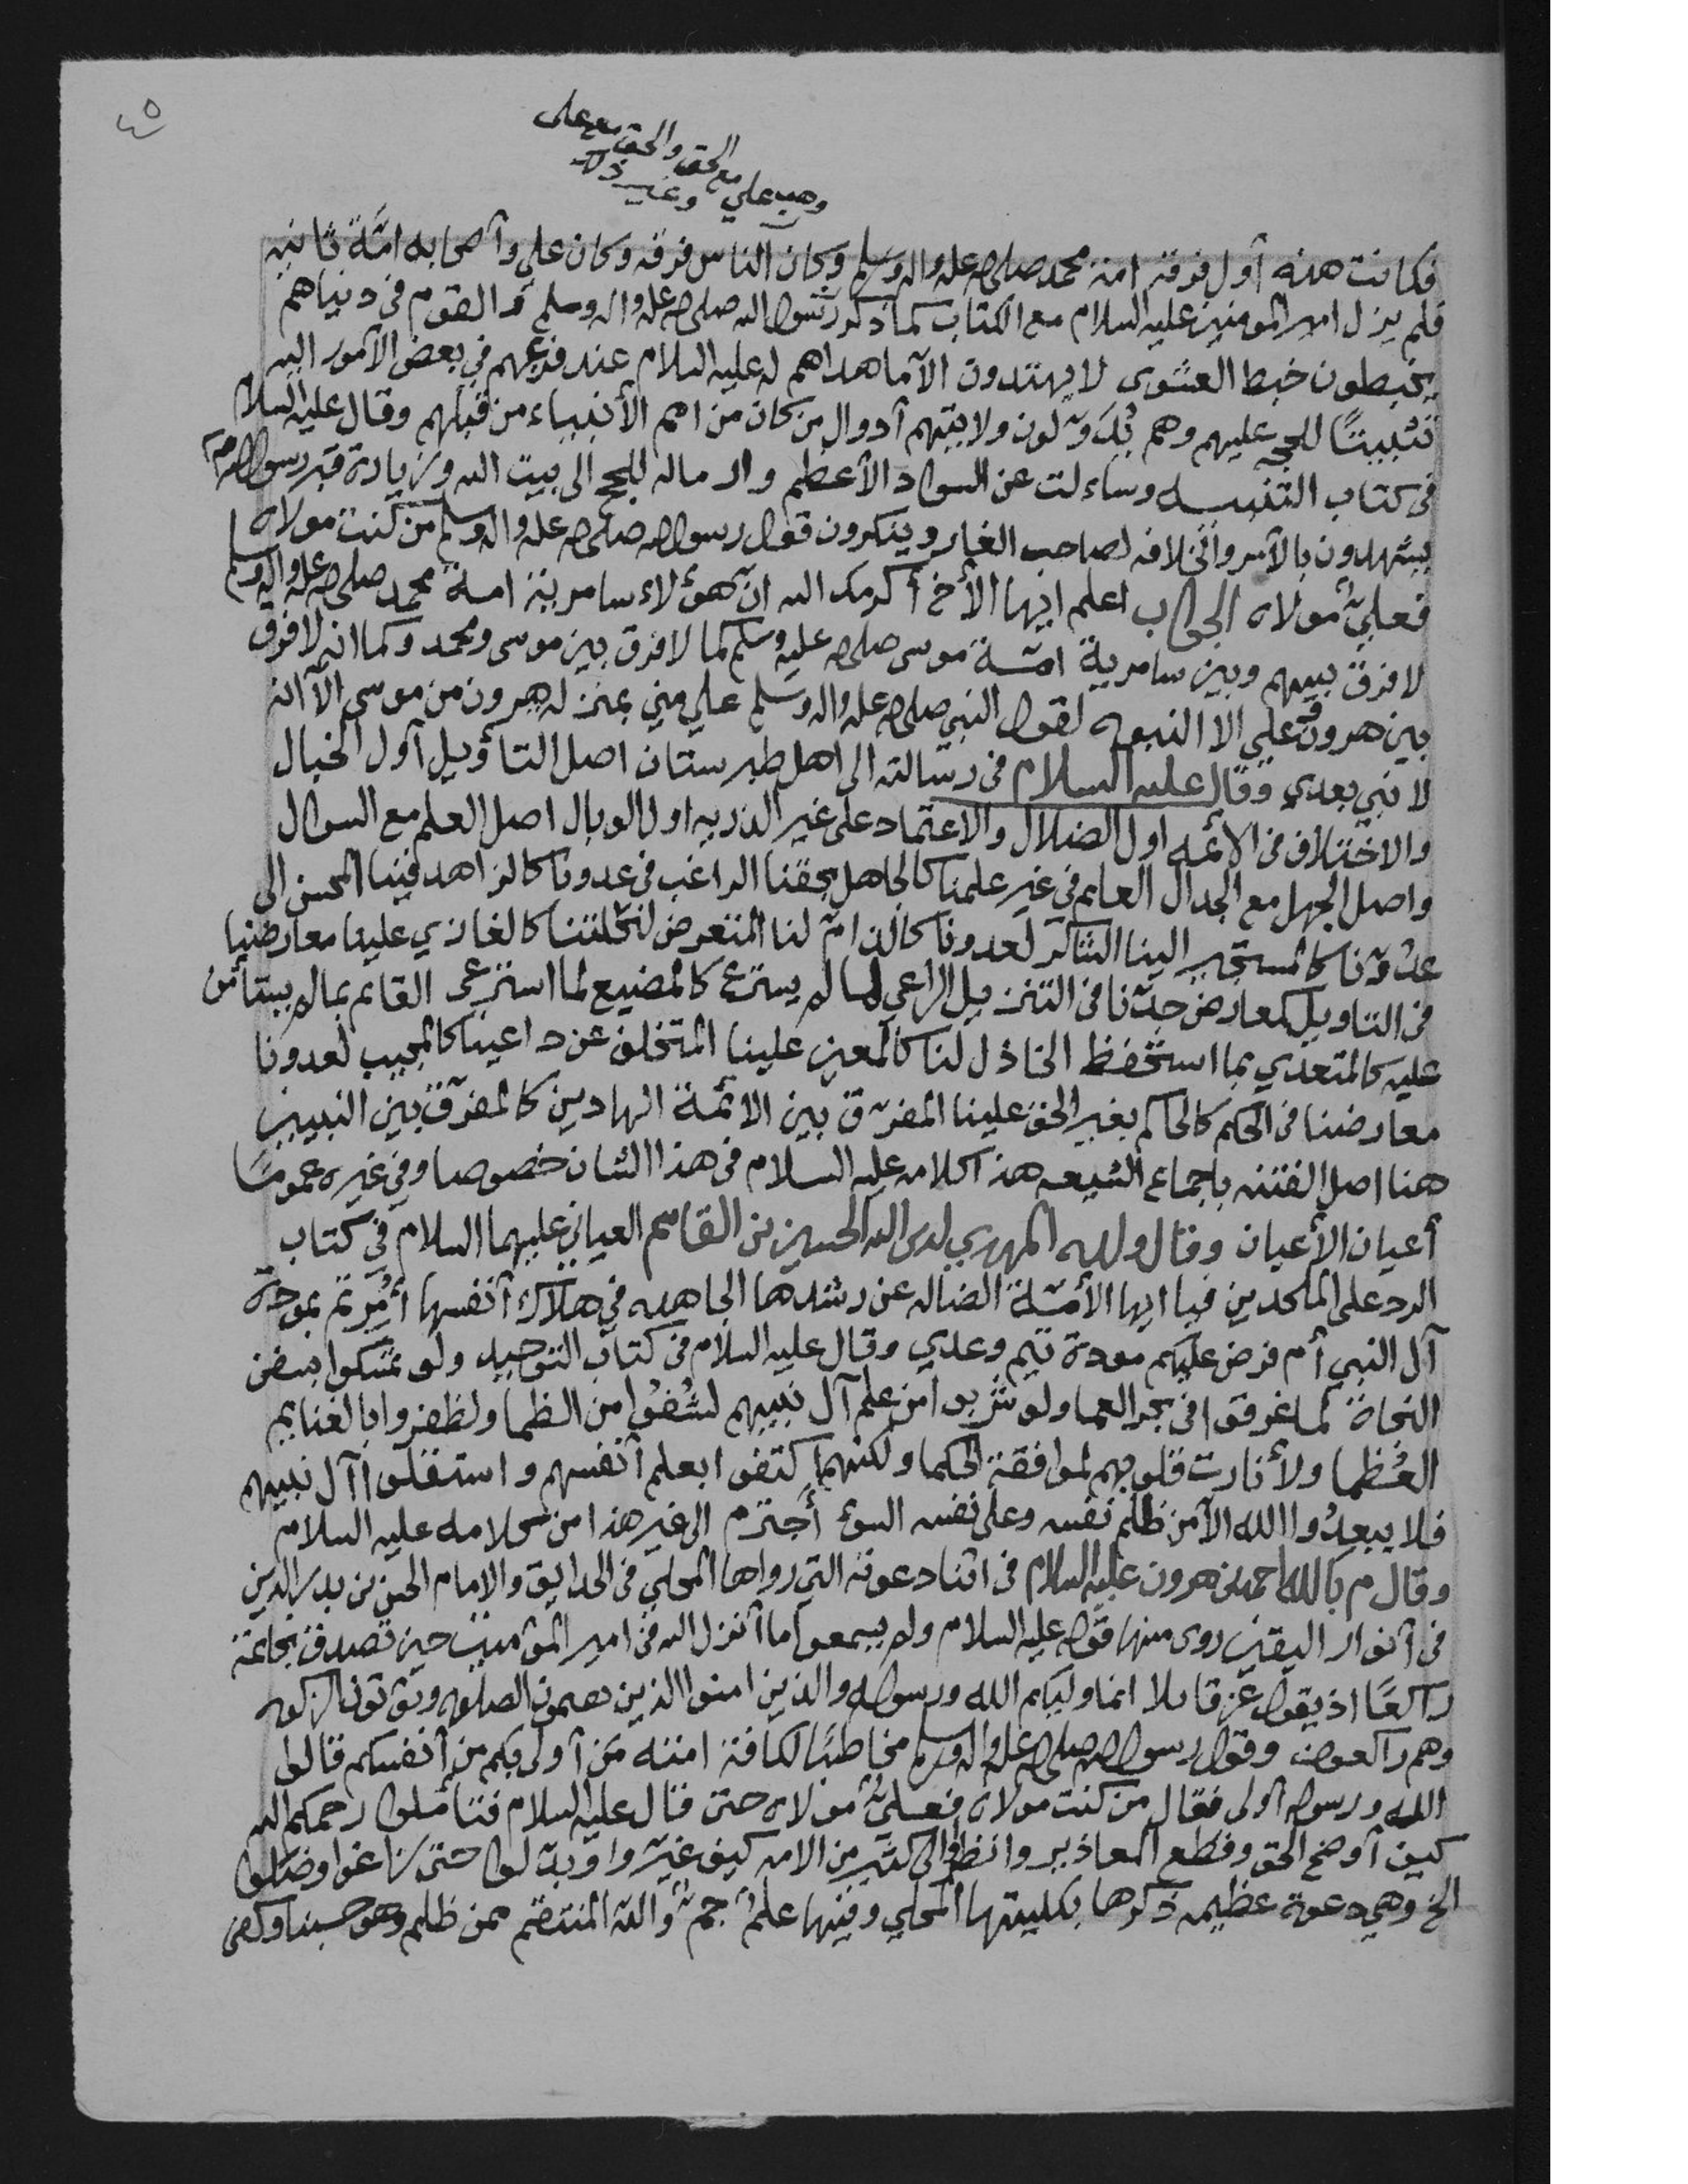 ٤٥
وحديث علي مع الحق والحق مع علي
وغير ذلك
فكانت هذه أول فرقة امة محمد صلى الله عليه واله وسلم وكان الناس فرقة وكان علي وأصحابه امّة ثانيه
فلم يزل امير المومنين عليه السلام مع الكتاب كما ذكر رسول الله صلى الله عليه واله وسلم والقوم في دنياهم
يخبطون خبط العشوى لا يهتدون الا ما هداهم له عليه السلام عند فزعهم في بعض الأمور اليه
تثبيتًا للحجه عليهم وهم يُدَوّلون ولايتهم أدوال من كان من امم الأنبياء من قبلهم وقال عليه السلام
في كتاب التنبيه وساءلت عن السواد الأعظم والـ ماله للحج الى بيت الله وزيارة قبر رسول الله
يشهدون بالأمر والخلافه لصاحب الغار وينكرون قول رسول الله صلى الله عليه واله وسلم من كنت مولاه
فعليٌّ مولاه الجواب اعلم ايها الأخ أكرمك الله انّ هؤلاء سامرية امة محمد صلى الله عليه واله وسلم
لا فرق بينهم وبين سامرية امّة موسى صلى الله عليه وسلم كما لا فرق بين موسى ومحمد وكما انه لا فرق
بين هرون وعلي الا النبوه لقول النبي صلى الله عليه واله وسلم علي مني بمنزلة هرون من موسى الا انه
لا نبي بعدي وقال عليه السلام في رسالته الى اهل طبرستان اصل التأويل أول الخبال
والاختلاف في الائمه اول الضلال والاعتماد على غير الذريه اول الوبال اصل العلم مع السوال
واصل الجهل مع الجدال العالم في غير علمنا كالجاهل بحقنا الراغب في عدونا كالزاهد فينا المحسن الى
عدوّنا كالمستجير الينا الشاكر لعدونا كالذامّ لنا المتعرض لنحلتنا كالغازي علينا معارضنا
في التاويل كمعارض جدّنا في التنزيل الراعي لما لم يسترع كالمضيع لما استرعى القايم بما لم يستأمن
عليه كالمتعدي بما استحفظ الخاذل لنا كالمعين علينا المتخلف عن داعينا كالمجيب لعدونا
معارضنا في الحكم كالحاكم بغير الحق علينا المفرق بين الائمة الهادين كالمفرّق بين النبيين
هنا اصل الفتنه باجماع الشيعه هذا كلامه عليه السلام في هذا الشان خصوصا وفي غيره عمومًا
أعيان الأعيان وقال ولده المهدي لدين الله الحسين بن القاسم العياني عليهما السلام في كتاب
الرد على الملحدين فيا ايها الأمّة الضاله عن رشدها الجاهده في هلاك أنفسها أأُمِرتم بمودة
آل النبي أم فرض عليكم مودة تيم وعدي وقال عليه السلام في كتاب التوحيد ولو تمسكوا بسفن
النجاة لما غرقوا في بحر العما ولو شربوا من علم آل نبيهم لشُفُوا من الظما ولظفروا بالغنايم
العُظما ولأنارت قلوبهم لموافقة الحكما ولكنهم اكتفوا بعلم أنفسهم واستقلوا آل نبيهم
فلا يبعدُوا الله الا من ظلم نفسه وعلى نفسه السوء أجترم الى غير هذا من كلامه عليه السلام
وقال م بالله احمد بن هرون عليه السلام في اثنا دعوته التي رواها المحلي في الحدايق والامام الحسن بن بدر الدين
في أنوار اليقين روى منها قوله عليه السلام ولم يسمعوا ما أنزل الله في امير المؤمنين حين تصدق بخاتمه
راكعًا اذ يقول عز قائلا انما وليكم الله ورسوله والذين امنوا الذين يقيمون الصلوه ويؤتون الزكوه
وهم راكعون وقول رسول الله صلى الله عليه واله وسلم مخاطبًا لكافة امته من أولى بكم من أنفسكم قالوا
الله ورسوله أولى فقال من كنت مولاه فعليٌّ مولاه حتى قال عليه السلام فتأملوا رحمكم الله
كيف أوضح الحق وقطع المعاذير وانظروا الى كثير من الامه كيف غيّروا وبدّلوا حتى زاغوا وضلوا
الخ وهي دعوة عظيمه ذكرها بكليتها المحلي وفيها علمٌ جمٌّ والله المنتقم ممن ظلم وهو حسبنا وكفى